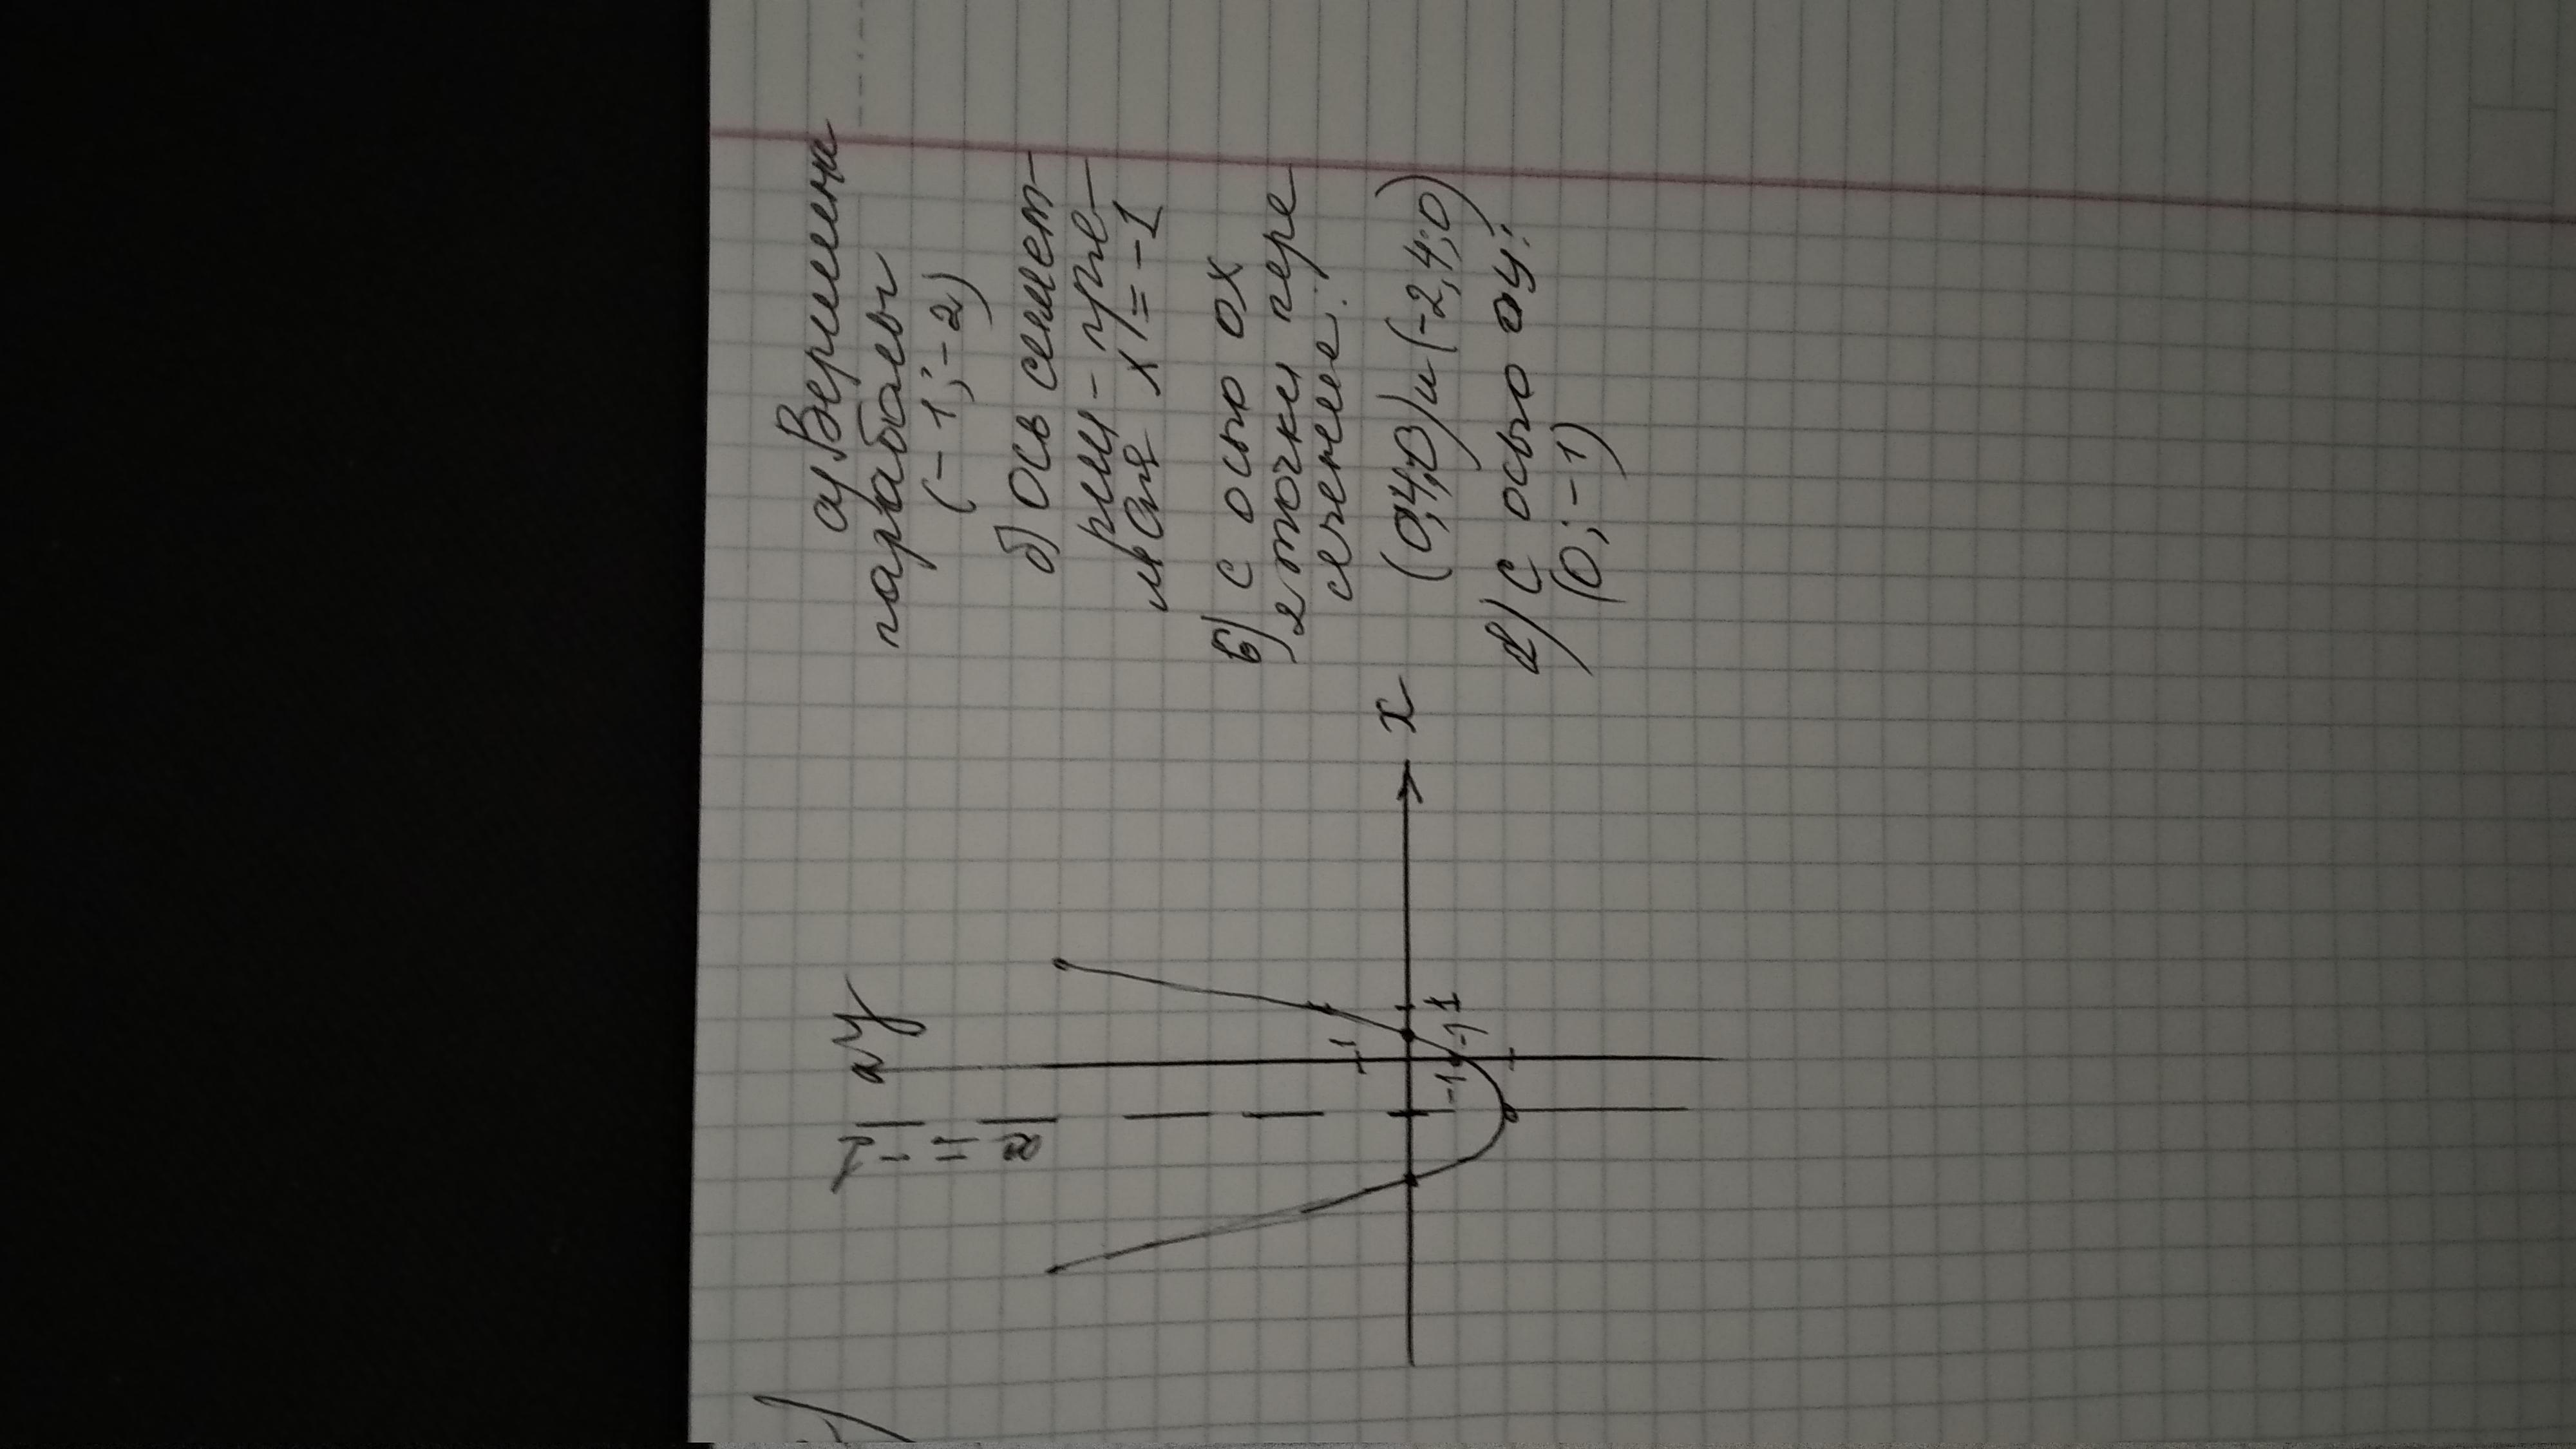 а) Вершина
параболы
(-1; -2)
б) Ось симмет-
рии - пря-
мая x = -1
в) С осью ох
2 точки пере
сечения:
(0,4;0) и (-2,4;0)
г) С осью оу:
(0; -1)
y
x = -1
1
x
1
-1
-1